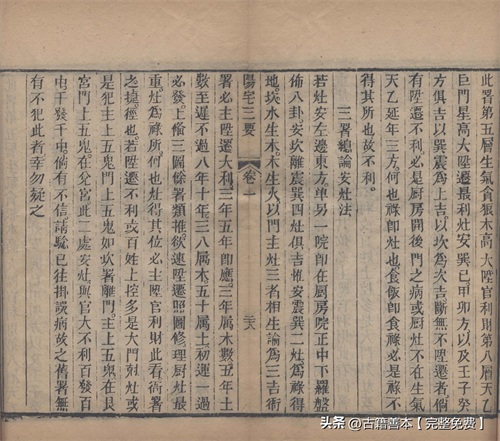 此署第五層生氣貪狼木高大陞官利財第八層天乙
巨門星高大陞遷最利灶安巽巳甲卯方以及壬子癸
方俱吉以巽震為上吉以坎為次吉斷無不陞遷者倘
有陞遷不利必是厨房開後門之病或厨灶不在生氣
天乙延年三方何也祿即灶也食祿即食祿必是祿不
得其所也故不利
三署總論安灶法
若灶安左邊東方單另一院即在厨房院正中下羅盤
佈八卦安坎離震巽四灶俱吉惟安震巽二灶為得祿
地坎水生木木生火以門主灶三者相生論為三吉術
陽宅三要
卷一
二六
署必主陞遷大利三年五年即應三年属木數五年土
數至遲不過八年十年三八属木五十属土初運一過
必發上偹三圖餘署類推欲速陞遷照圖修理厨灶最
重灶為祿所何也灶得其位必主陞官利財此看衙署
之捷徑也若陞遷不利或百姓上控多是大門對灶或
是犯主上五鬼大門上五鬼如坎署離門主上五鬼在艮
宮門上五鬼在兌宮此二處安灶與官大不利百發百
中千發千中倘有不信請騐已往掛誤病故之舊署無
有不犯此者幸勿疑之
头条 @古籍善本【完整免费】